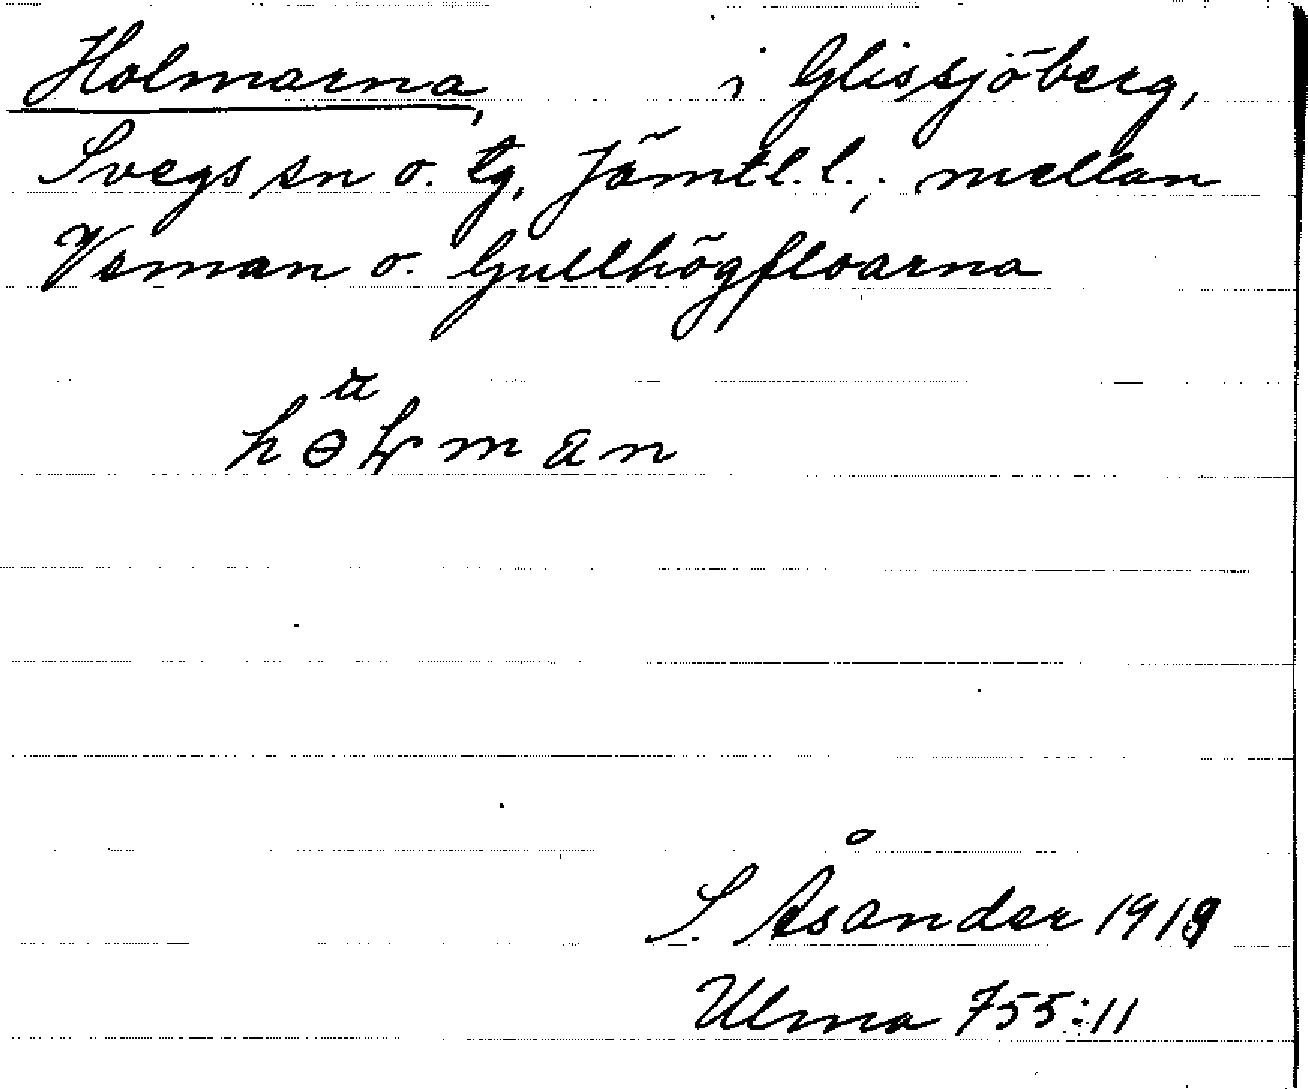 Holmarna, i Glissjöberg,
Svegs sn o. tg, Jämtl. l.; mellan
Veman o. Gullhögfloarna
S. Åsander 1919
Ulma 755:11